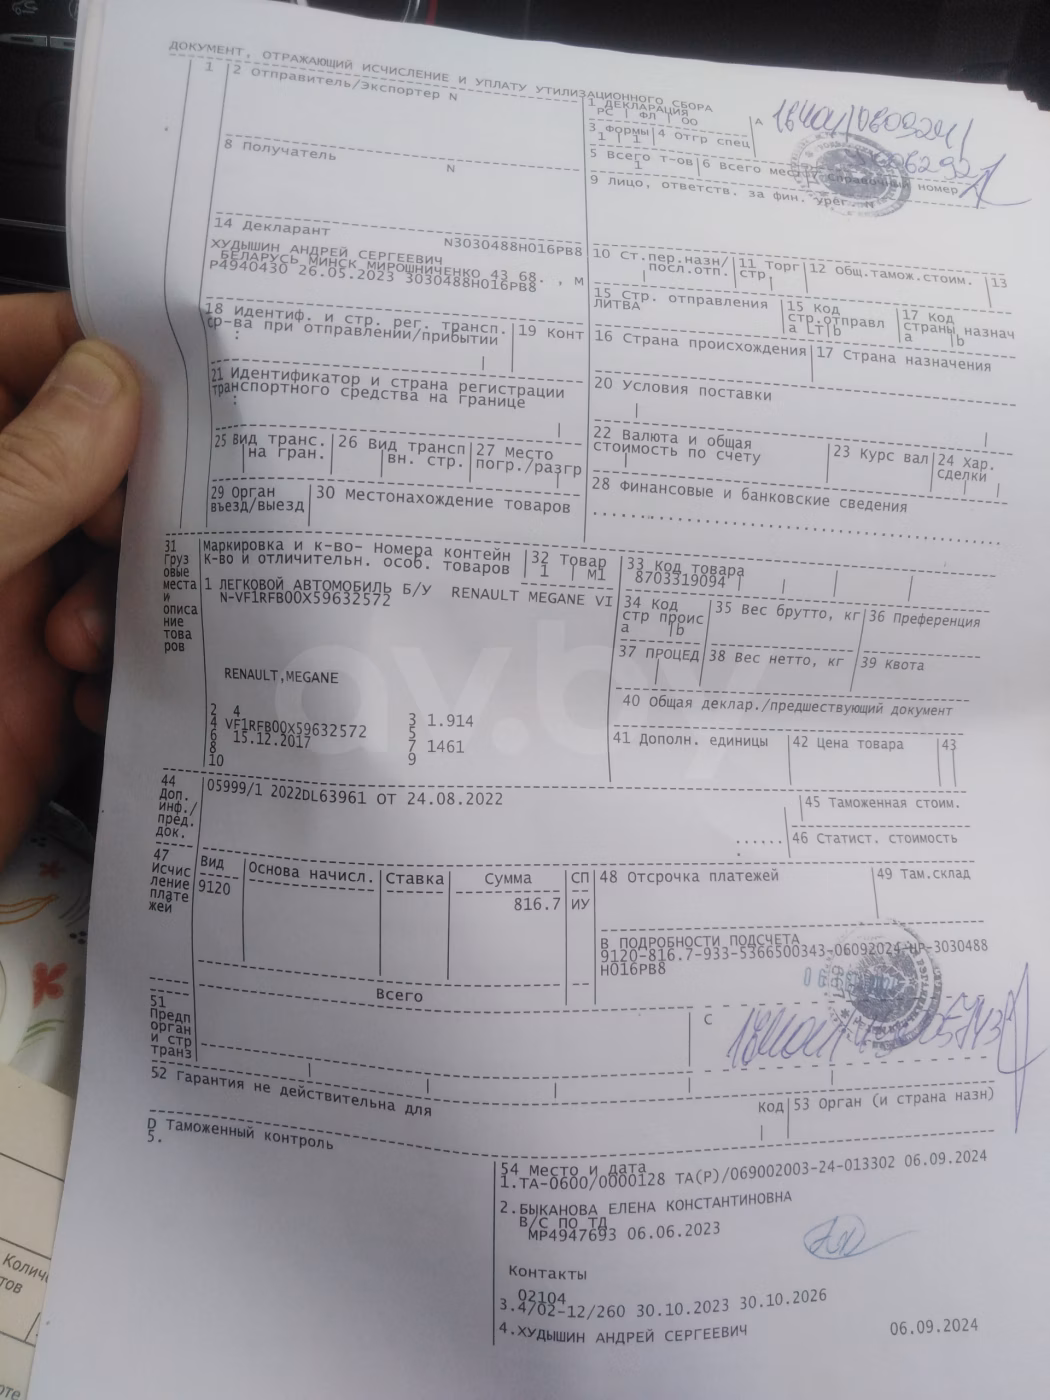 ДОКУМЕНТ, ОТРАЖАЮЩИЙ ИСЧИСЛЕНИЕ И УПЛАТУ УТИЛИЗАЦИОННОГО СБОРА
1 2 Отправитель/Экспортер N
1 ДЕКЛАРАЦИЯ
РС ФЛ ОО
А
3 Формы 4 Отгр спец
1 1
5 Всего т-ов 6 Всего мест 7 Справочный номер
1
8 Получатель N
9 Лицо, ответств. за фин. урег. N
14 Декларант N3030488H016PB8
ХУДЫШИН АНДРЕЙ СЕРГЕЕВИЧ
БЕЛАРУСЬ МИНСК МИРОШНИЧЕНКО 43 68. , М
P4940430 26.05.2023 3030488H016PB8
10 Ст.пер.назн/посл.отп. 11 Торг стр. 12 Общ.тамож.стоим. 13
15 Стр. отправления
ЛИТВА
15 Код стр.отправл
a LT b
17 Код страны назнач
a b
18 Идентиф. и стр. рег. трансп.
ср-ва при отправлении/прибытии
:
19 Конт
16 Страна происхождения 17 Страна назначения
21 Идентификатор и страна регистрации
транспортного средства на границе
:
20 Условия поставки
25 Вид транс. на гран. 26 Вид трансп вн. стр. 27 Место погр./разгр
22 Валюта и общая
стоимость по счету
23 Курс вал 24 Хар. сделки
29 Орган въезд/выезд 30 Местонахождение товаров
28 Финансовые и банковские сведения
31 Грузовые места и описание товаров
Маркировка и к-во- Номера контейн
к-во и отличительн. особ. товаров
32 Товар
1 М1
33 Код товара
8703319094
1 ЛЕГКОВОЙ АВТОМОБИЛЬ Б/У RENAULT MEGANE VI
N-VF1RFB00X59632572
34 Код стр проис
a b
35 Вес брутто, кг 36 Преференция
37 ПРОЦЕД 38 Вес нетто, кг 39 Квота
RENAULT,MEGANE
40 Общая деклар./предшествующий документ
2 4 3 1.914
4 VF1RFB00X59632572 5
6 15.12.2017 7 1461
8 9
10
41 Дополн. единицы 42 Цена товара 43
44 Доп. инф./ пред. док.
05999/1 2022DL63961 ОТ 24.08.2022
45 Таможенная стоим.
46 Статист. стоимость
47 Исчисление платежей
Вид Основа начисл. Ставка Сумма СП
9120 816.7 ИУ
48 Отсрочка платежей 49 Там.склад
В ПОДРОБНОСТИ ПОДСЧЕТА
9120-816.7-933-5366500343-06092024-НР-3030488
H016PB8
Всего
51 Предп орган и стр транз
С
52 Гарантия не действительна для
Код 53 Орган (и страна назн)
D Таможенный контроль
5.
54 Место и дата
1.ТА-0600/0000128 ТА(Р)/069002003-24-013302 06.09.2024
2.БЫКАНОВА ЕЛЕНА КОНСТАНТИНОВНА
В/С ПО ТД
МР4947693 06.06.2023
Контакты
02104
3.4/02-12/260 30.10.2023 30.10.2026
4.ХУДЫШИН АНДРЕЙ СЕРГЕЕВИЧ 06.09.2024
av.by
Колич
тов